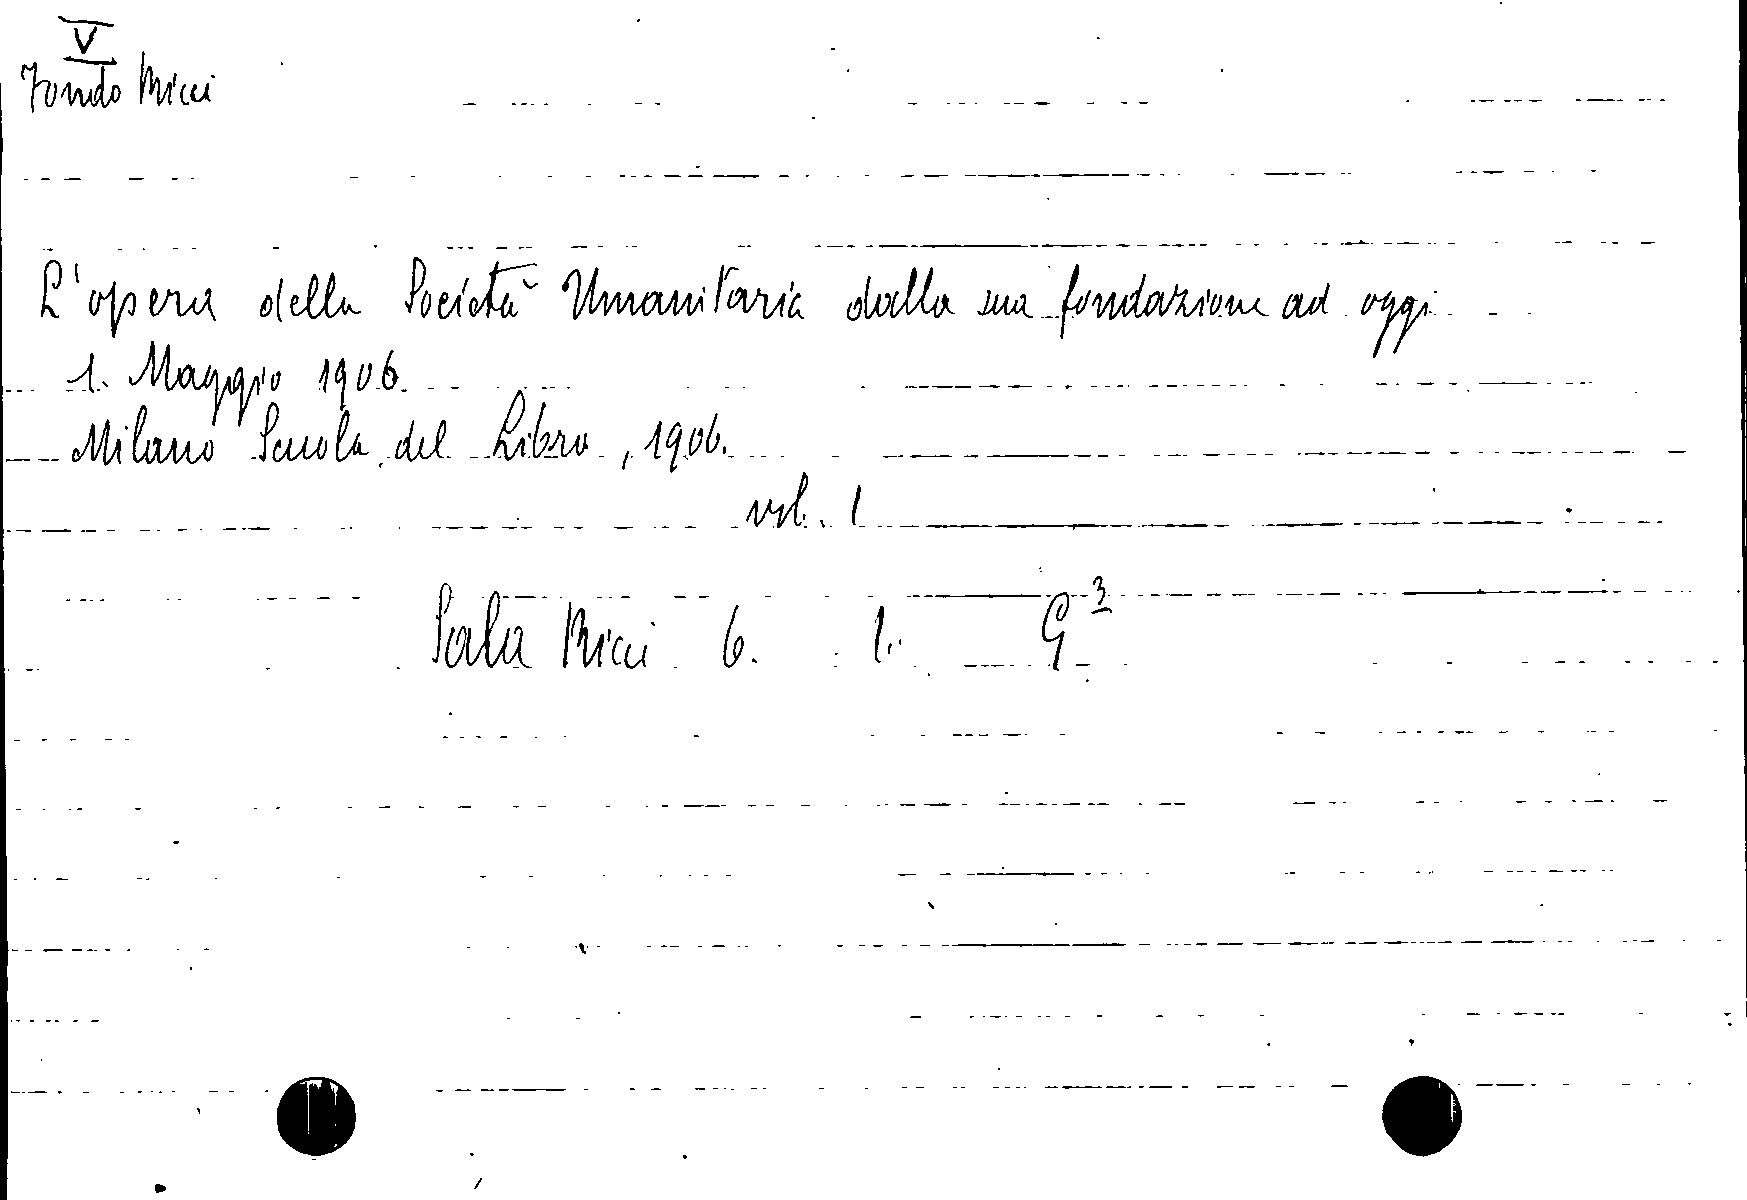 V
Fondo Ricci
L'opera della Società Umanitaria dalla sua fondazione ad oggi
1. Maggio 1906.
Milano Scuola del Libro, 1906.
vol. 1
Sala Ricci 6. 1. G³